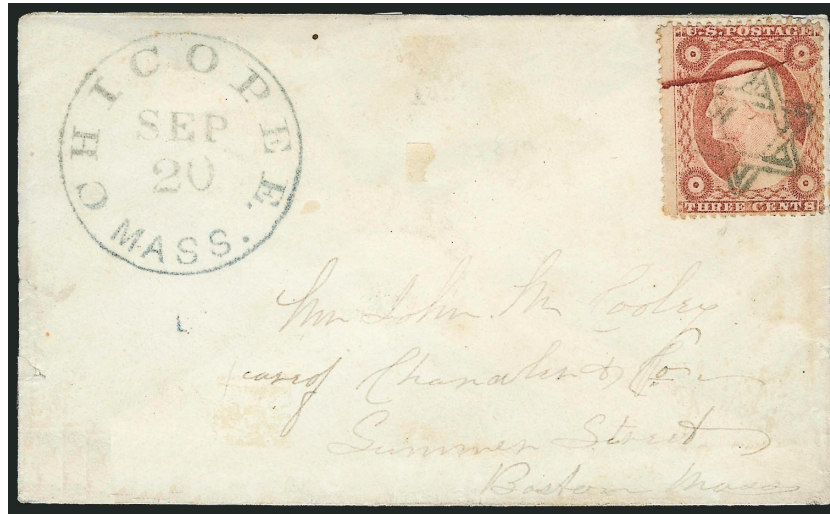 CHICOPEE
SEP
20
MASS.
U.S. POSTAGE
THREE CENTS
John M.
care of Chandler & Co
Summer Street
Boston Mass